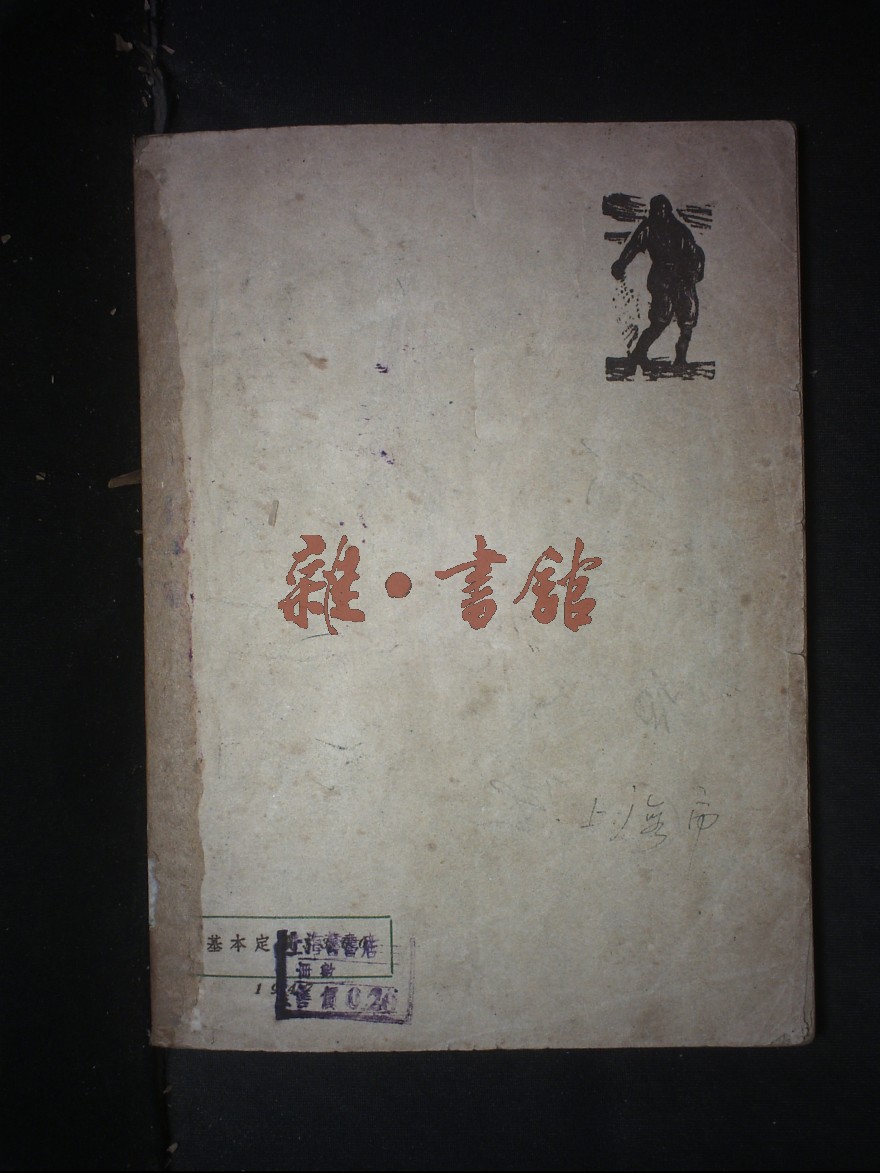 雜·書館
上海市
基本定
上海舊書店
冊數
售價0.20